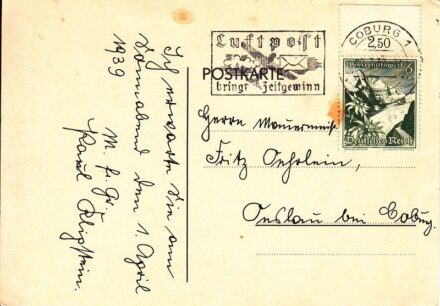 Ich erwarte Sie am
Sonnabend den 1. April
1939
M. f. Gr.
Luftpost
bringt Zeitgewinn
POSTKARTE
COBURG 1
2,50
Winterhilfswerk 6
Deutsches Reich
Herrn Maurermeister
Fritz Oehrlein,
Oeslau bei Coburg.